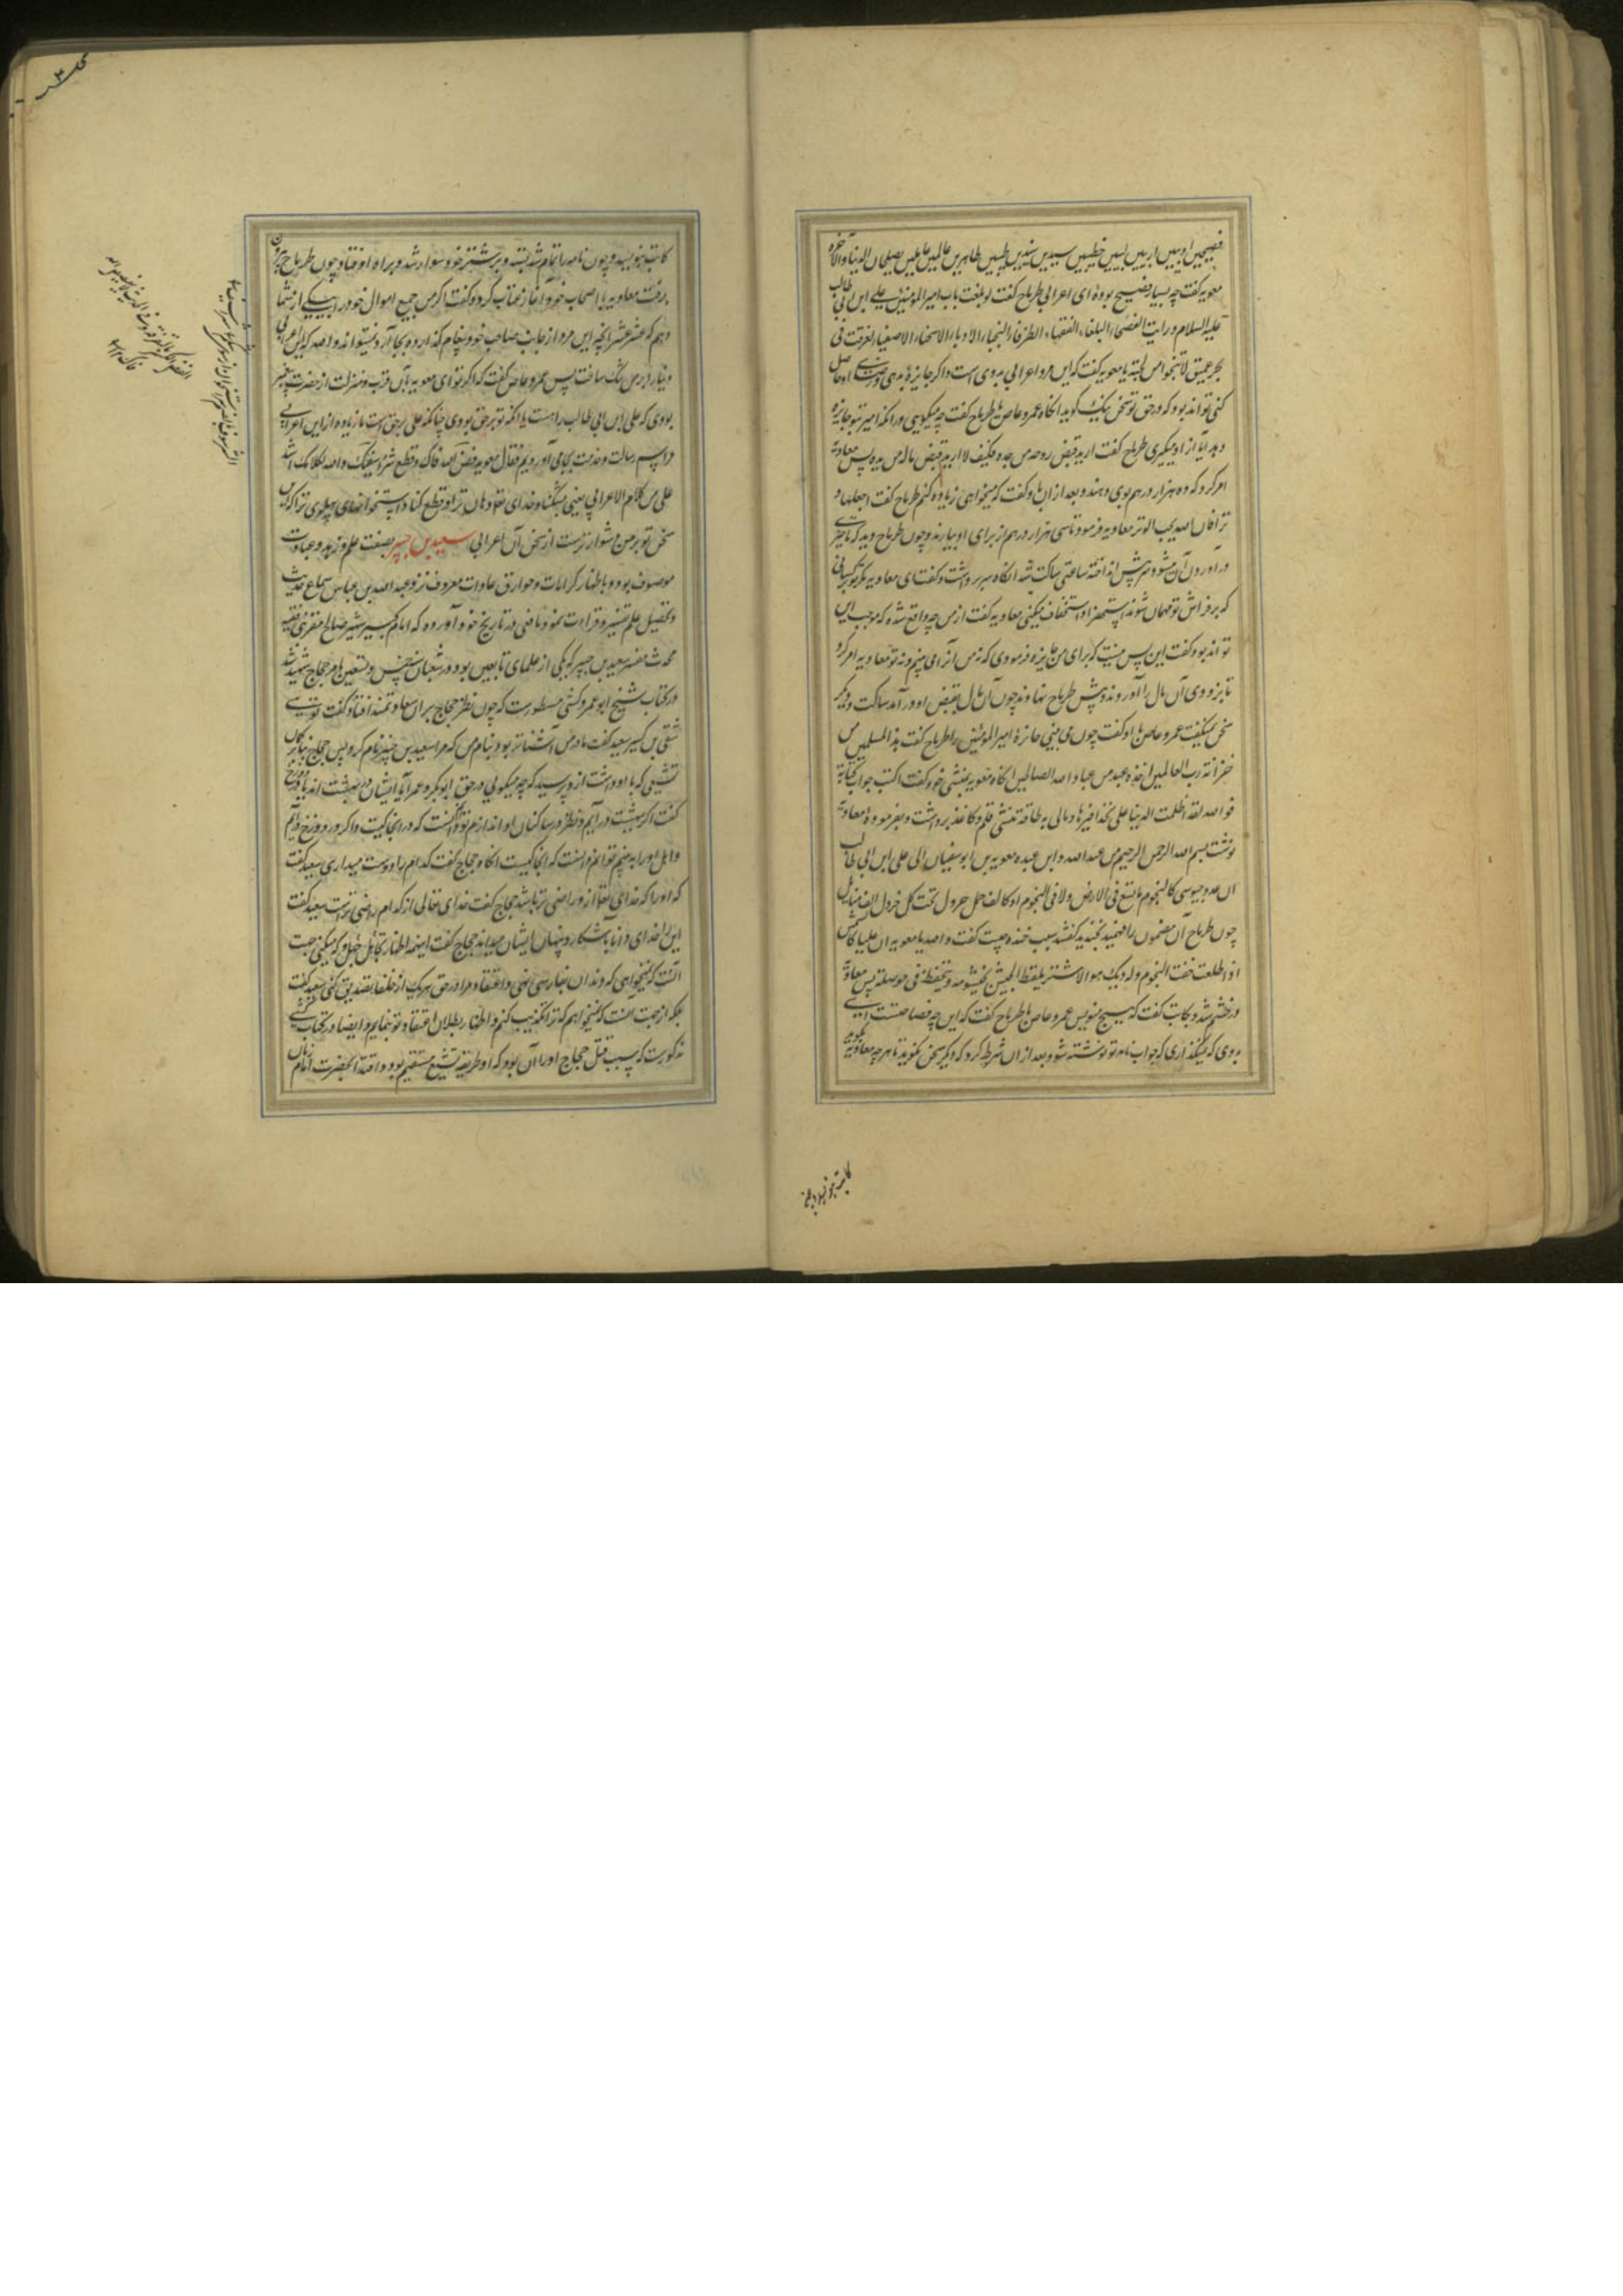 فصیحین ادیبین اریبین لبیبین خطیبین سیدین سندین طیبین طاهرین عالمین عاملین یصلحان الدنیا والآخره
معویه گفت چه بسیار فصیح بوده ای اعرابی طرماح گفت لو بلغت باب امیرالمؤمنین علی ابن ابی طالب
علیه السلام و رایت الفصحاء البلغاء الفقهاء الظرفاء النجباء الادباء الاسخیاء الاصفیاء لغرقت فی
بحر عمیق لا تنجو من لجته یا معویه گفت که این مرد اعرابی بدوی است و اگر جایزه بدهی و رضای او حاصل
کنی تواند بود که در حق تو سخن نیک گوید انگاه عمرو عاص با طرماح گفت چه میگویی در انکه امیر بتو جایزه
دهد آیا از او میگیری طرماح گفت ارید قبض روحه من جسده فکیف لا ارید قبض ماله من یده پس معاویه
امر کرد که ده هزار درهم بوی دهند و بعد از ان با او گفت که میخواهی زیاده کنم طرماح گفت اجعلها
وترا فان الله یحب الوتر معاویه فرمود تا سی هزار درهم از برای او بیارند و چون طرماح دید که تاخیری
در آوردن آن میشود سر پیش انداخته ساعتی ساکت شد انگاه سر برداشت و گفت ای معاویه مگر بر کسانی
که بر فراش تو مهمان شوند استهزا و استخفاف میکنی معاویه گفت از من چه واقع شده که موجب این
تواند بود گفت این پس نیست که برای من جایزه فرمودی که نه من آنرا می بینم و نه تو معاویه امر کرد
تا بزودی آن مال را آوردند و پیش طرماح نهادند چون آن مال بقبض او در آمد ساکت و دیگر
سخن نمیگفت عمرو عاص با او گفت چون می بینی جایزهٔ امیرالمؤمنین را طرماح گفت هذا مال المسلمین من
خزانة رب العالمین اخذه عبد من عباد الله الصالحین انگاه معویه بمنشی خود گفت اکتب جواب کتابه
فو الله لقد اظلمت الدنیا علی بحذافیرها و مالی به طاقة منشی قلم و کاغذ برداشت و بفرمودهٔ معاویه
نوشت بسم الله الرحمن الرحیم من عبد الله وابن عبده معویه بن ابوسفیان الی علی ابن ابی طالب
چون طرماح آن مضمون را فهمید بخندید گفتند سبب خنده چیست گفت والله یا معویه ان علیا کالشمس
اذا طلعت خفت النجوم وله دیک هو الاشتر یلتقط الجیش بخیشومه و یحفظه فی حوصلته پس معاویه
در خشم شد و بکاتب گفت که هیچ منویس عمرو عاص با طرماح گفت که این چه فصاحتست ای
بدوی که نمیگذاری که جواب نامه تو نوشته شود و بعد از ان شرط کرد که دیگر سخن نگوید تا هر چه معاویه گوید
کاتب بنویسد و چون نامه را تمام شد بستد و بر شتر خود سوار شد و براه افتاد و چون طرماح بیرون
برفت معاویه با اصحاب خود آغاز عتاب کرد و گفت اگر من جمیع اموال خود را بیکی از شما
دهم که عشر عشر آنچه این مرد از جانب صاحب خود پیغام گذارد بجا آرد نمیتواند والله که این اعرابی
دنیا را بر من تنگ ساخت پس عمرو عاص گفت که اگر تو ای معویه بآن قرب و منزلت از حضرت پیغمبر
بودی که علی ابن ابی طالب راست یا آنکه تو بر حق بودی چنانکه علی بر حق است ما زیاده از این اعرابی
مراسم رسالت و خدمت بجا می آوردیم فقال معویه فض الله فاک و قطع شراسیفک والله لکلامک اشد
علی من کلام الاعرابی یعنی بشکناد خدای تعالی دهان ترا و قطع کناد استخوانهای پهلوی ترا که این
سخن تو بر من دشوارترست از سخن آن اعرابی سعید بن جبیر بصفت علم و زهد و عبادت
موصوف بود و باظهار کرامات و خوارق عادات معروف نزد عبد الله بن عباس سماع حدیث
و تحصیل علم تفسیر و قراءت نمود و یافعی در تاریخ خود آورده که امام کبیر شهیر صالح مقری فقیه
محدث مفسر سعید بن جبیر که یکی از علمای تابعین بود در شعبان سنه خمس و تسعین بامر حجاج شهید شد
در کتاب شیخ ابو عمرو کشی مسطورست که چون نظر حجاج بران سعادتمند افتاد گفت توئی
شقی بن کسیر سعید گفت مادر من آشناتر بود بنام من که مرا سعید بن جبیر نام کرد پس حجاج بنابر گمان
تشیعی که باو داشت از وی پرسید که چه میگوئی در حق ابوبکر و عمر آیا ایشان در بهشت اند یا دوزخ
گفت اگر ببهشت در آیم و نظر در ساکنان او اندازم توانم دانست که در انجا کیست و اگر در دوزخ در آیم
و اهل او را به بینم توانم دانست که انجا کیست انگاه حجاج گفت کدام را دوست میداری سعید گفت
که او را که خدای تعالی از و راضی تر باشد حجاج گفت خدای تعالی از کدام راضی تر است سعید گفت
این را خدای دانا باشکار و پنهان ایشان میداند حجاج گفت اینهمه اظهار تجاهل که میکنی جهت
آنست که نمیخواهی که دندان بخارسی نهی و اعتقاد مرا در حق هر یک از خلفا تصدیق کنی سعید گفت
بلکه از جهت آنست که نمیخواهم که ترا تکذیب کنم و اظهار بطلان اعتقاد تو نمایم و ایضا در کتاب کشی
مذکورست که سبب قتل حجاج او را آن بود که او طریقه تشیع مستقیم بود و اقتدا بحضرت امام زمان